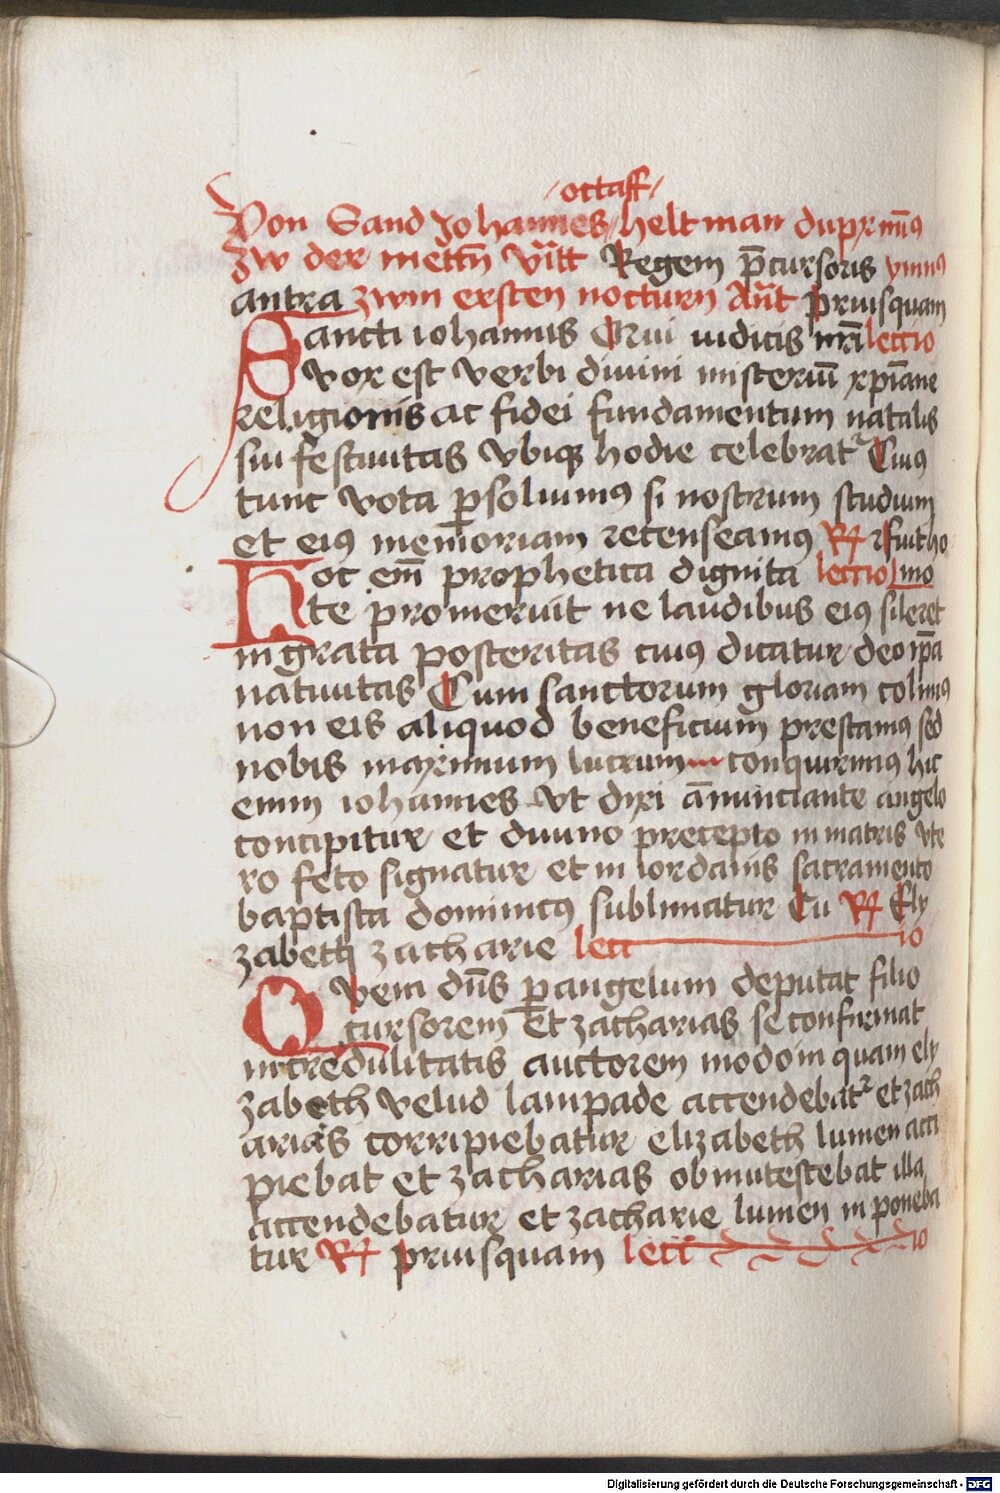 /octaff/
Von Sand Johannes helt man dupx mi⁹
Zw der mettn̄ vītt Regem p̄cursoris ymn⁹
antra zwm ersten nocturn An̄t priusquam
Sancti iohannis Crui iudicis mr̄i lectio
vox est verbi divini misteriū xp̄iane
religionis ac fidei fundamentum natalis
sui festiuitas vbiqꝫ hodie celebratᷣ Cui⁹
tunc vota ꝑsoluim⁹ si nostrum studium
et ei⁹ memoriam recenseam⁹ R fuit ho
Hoc em̄ prophetica dignita lectio mo
te promeruit ne laudibus ei⁹ sileret
ingrata posteritas cui⁹ dicatur deo ip̄a
natiuitas Cum sanctorum gloriam colim⁹
non eis aliquod beneficium prestam⁹ sed
nobis maximum lucrum conquirim⁹ hic
enim iohannes vt dixi an̄nunciante angelo
concipitur et diuino precepto in matris vte
ro feto signatur et in iordanis sacramento
baptista dominic⁹ sublimatur Cu R Ely
zabeth zacharie lect io
Quem dn̄s ꝑ angelum deputat filio
cursorem Et zacharias se confirmat
incredulitatis auctorem modo in quam ely
zabeth velud lampade accendebatᷣ et zach
arias corripiebatur elizabeth lumen acci
piebat et zacharias obmutescebat illa
accendebatur et zacharie lumen in poneba
tur R priusquam lect io
Digitalisierung gefördert durch die Deutsche Forschungsgemeinschaft - DFG